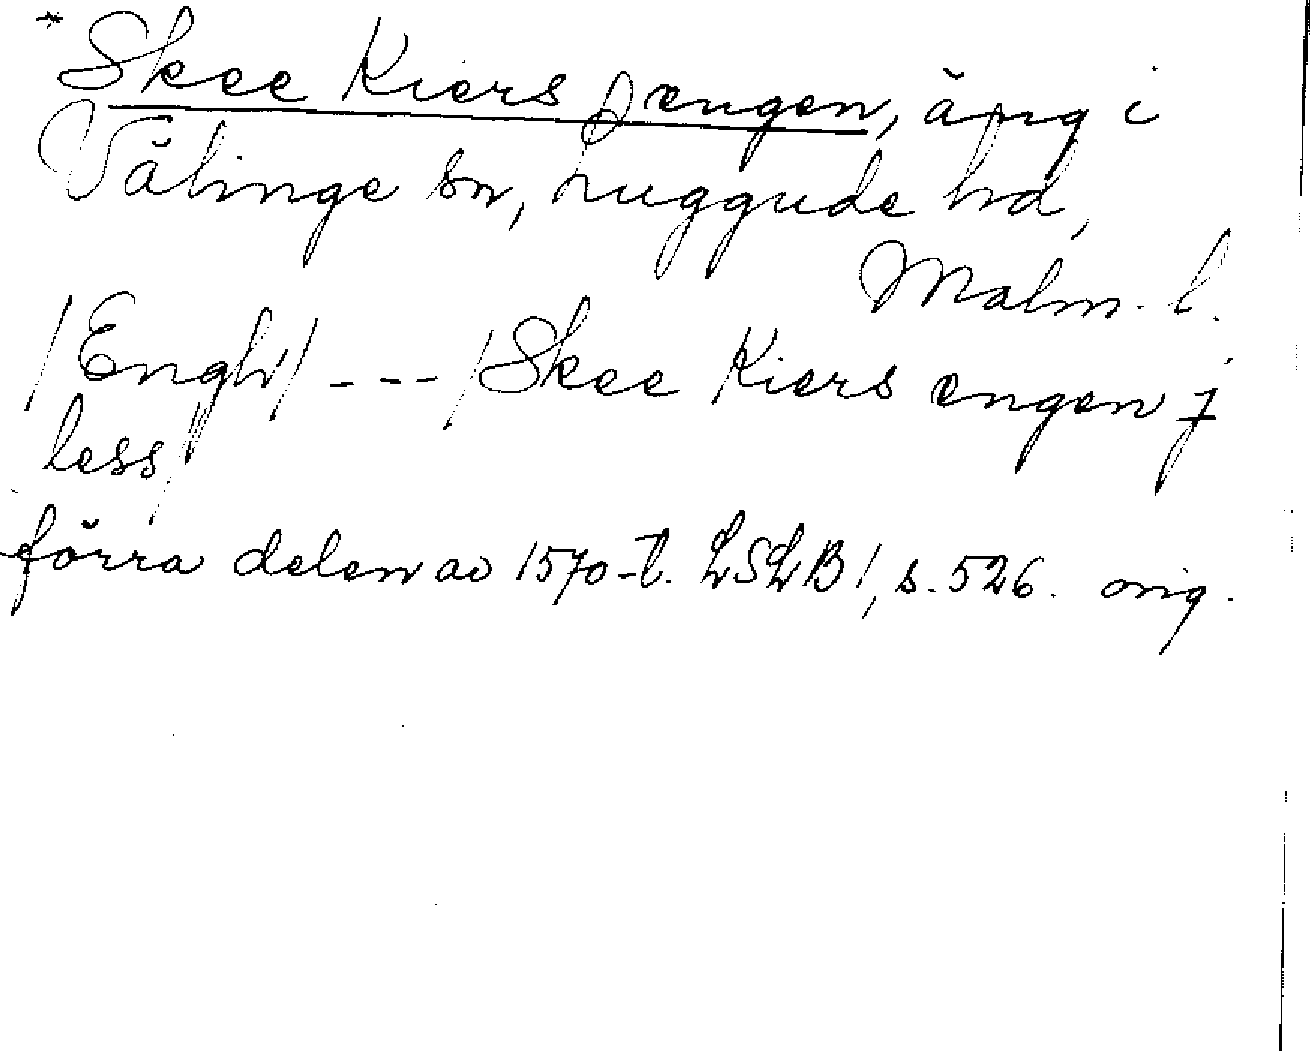 * Skee Kiers engen, äng i
Välinge sn, Luggude hd,
Malm. l.
/Engh/ --- /Skee Kiers engen j
less/
förra delen av 1570-t. LSLB 1, s. 526. orig.